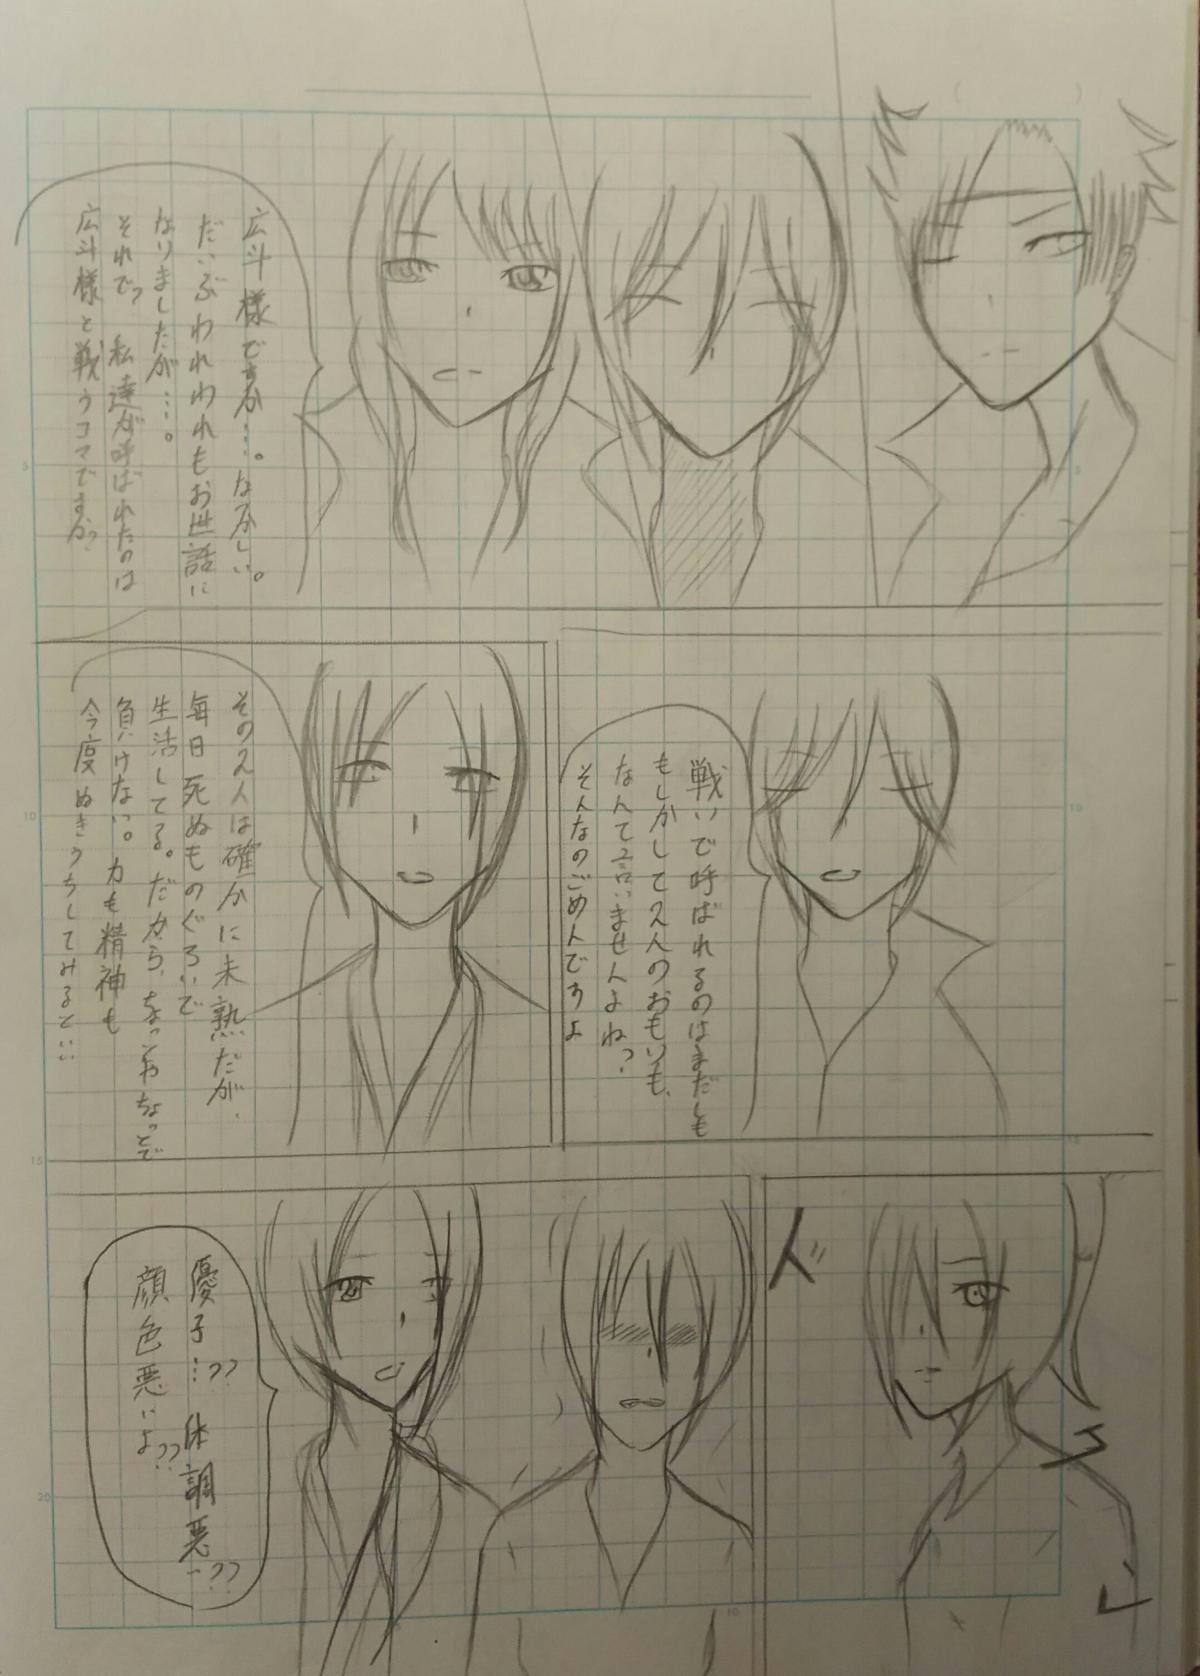 広斗様ですか…。なつかしい。
だいぶわれわれもお世話に
なりましたが…。
それで? 私達が呼ばれたのは
広斗様と戦うコマですか?
戦いで呼ばれるのはまだしも
もしかして2人のおもいも、
なんて言いませんよね?
そんなのごめんですよ
その2人は確かに未熟だが、
毎日死ぬものぐるいで
生活してる。だから、ちょっとやちょっとで
負けない。力も精神も
今度ぬきうちしてみるといい
ド
優子…?? 体調悪い??
顔色悪いよ??